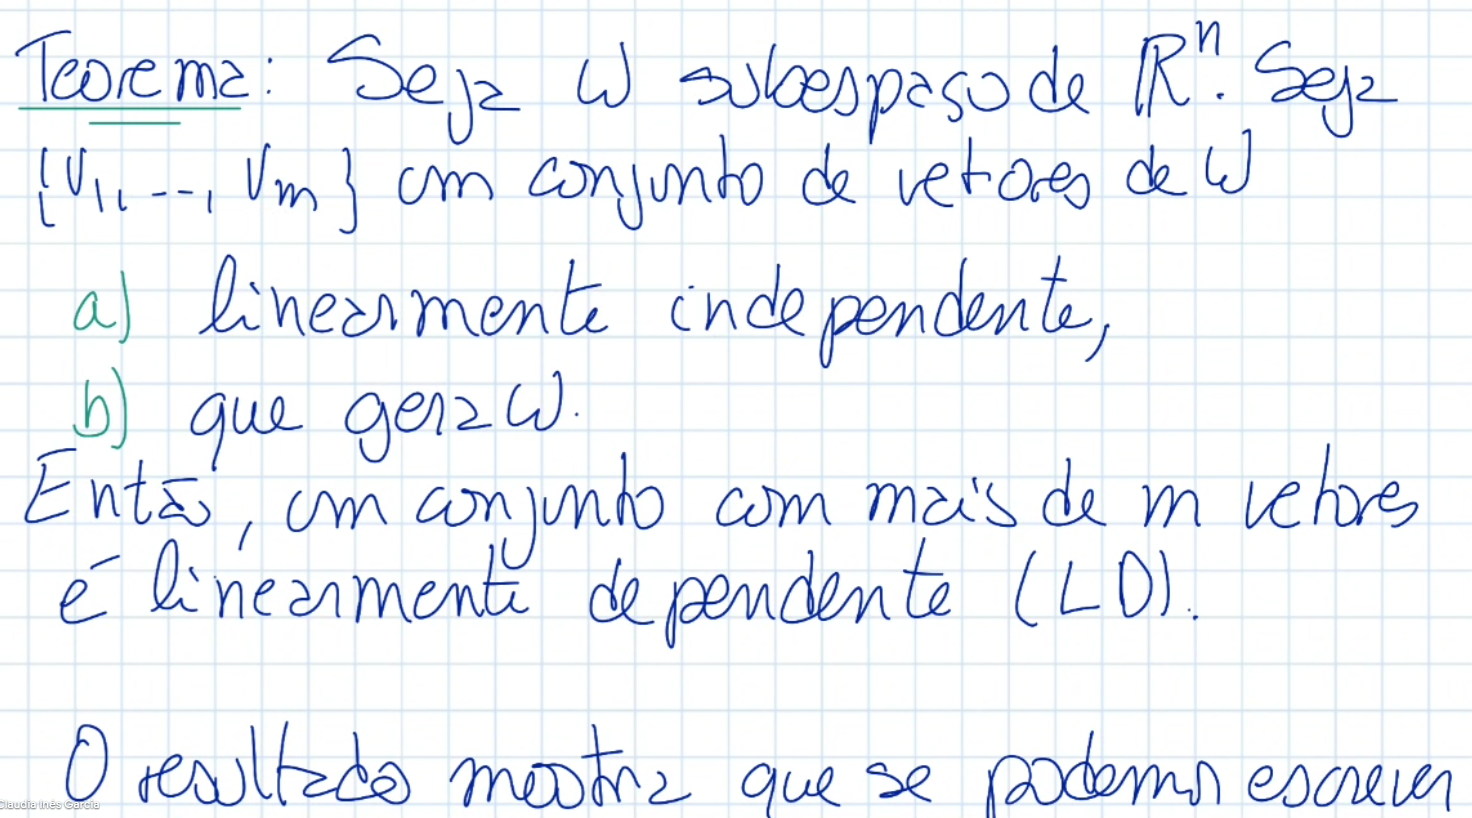 Teorema: Seja W subespaço de ℝⁿ. Seja
{v₁, ..., vₘ} um conjunto de vetores de W
a) linearmente independente,
b) que gera W.
Então, um conjunto com mais de m vetores
é linearmente dependente (LD).
O resultado mostra que se podemos escrever
Claudia Inés Garcia